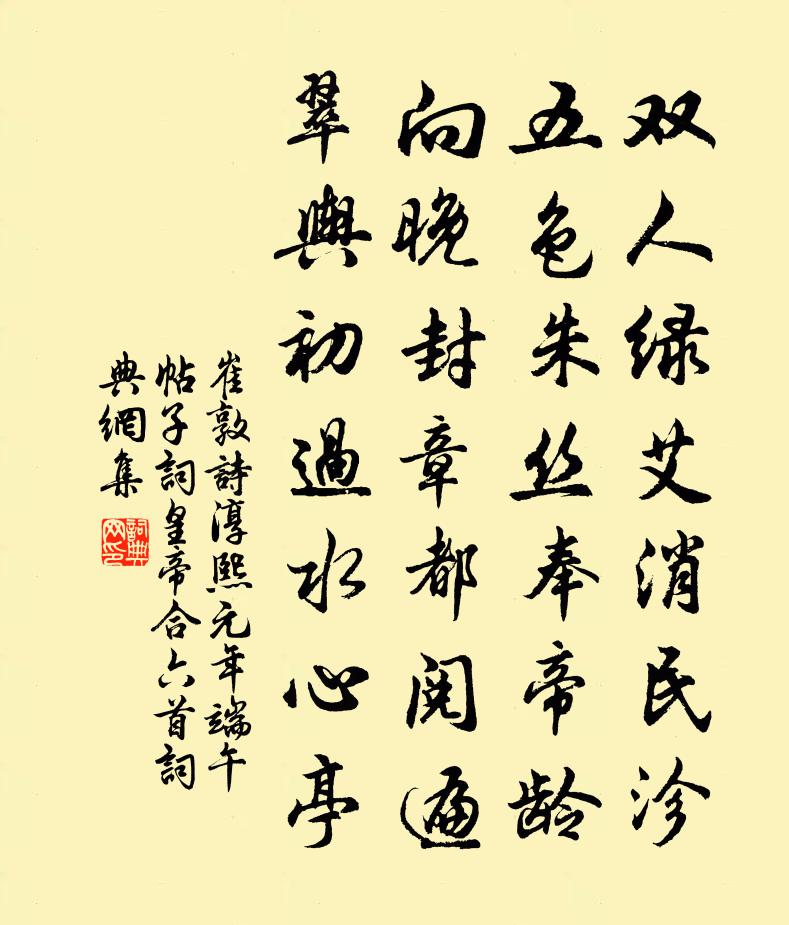 双人绿艾消民沴
五色朱丝奉帝龄
向晚封章都阅遍
翠舆初过水心亭
崔敦詩淳熙元年端午
帖子詞皇帝合六首詞
典網集
詞典网印